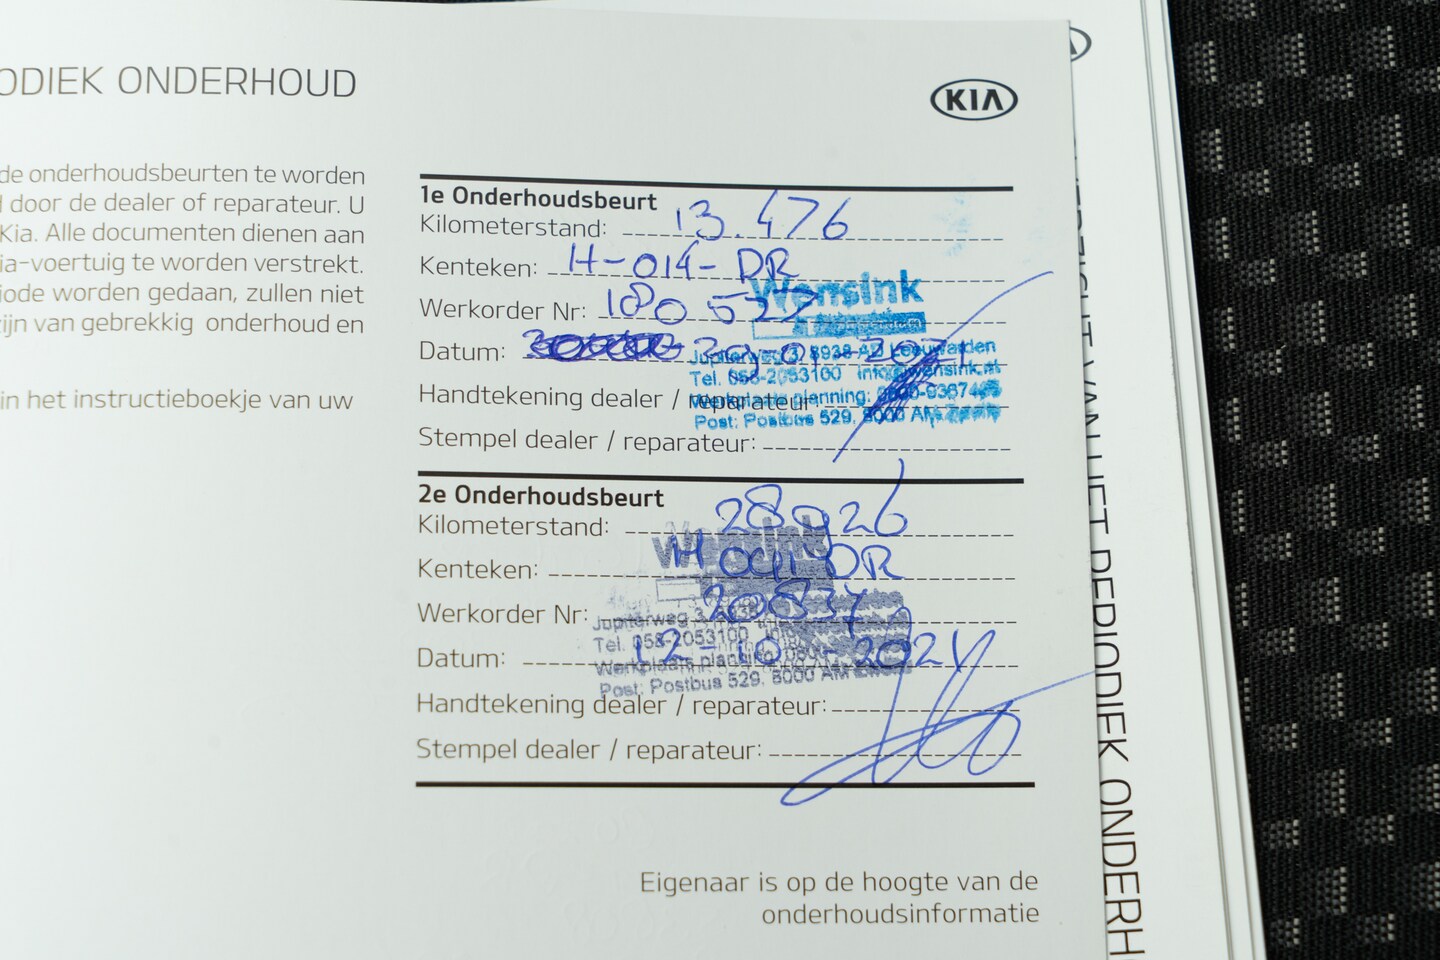 ODIEK ONDERHOUD
KIA
de onderhoudsbeurten te worden
door de dealer of reparateur. U
Kia. Alle documenten dienen aan
ia-voertuig te worden verstrekt.
iode worden gedaan, zullen niet
zijn van gebrekkig onderhoud en
in het instructieboekje van uw
1e Onderhoudsbeurt
Kilometerstand: 13.476
Kenteken: H-014-DR
Werkorder Nr: 180527
Wensink
Datum: 2021
Jupiterweg 3, 8938 AD Leeuwarden
Tel. 058-2053100 info@wensink.nl
Handtekening dealer / reparateur:
Werkplaats planning:
Post: Postbus 529, 8000 AM Zwolle
Stempel dealer / reparateur:
2e Onderhoudsbeurt
Kilometerstand: 28926
Wensink
Kenteken: H 014 DR
Werkorder Nr:
Jupiterweg 3,
Tel. 058-2053100
Datum: 12-10-2021
Werkplaats planning:
Post: Postbus 529, 8000 AM Zwolle
Handtekening dealer / reparateur:
Stempel dealer / reparateur:
Eigenaar is op de hoogte van de
onderhoudsinformatie
VAN HET PERIODIEK ONDERH